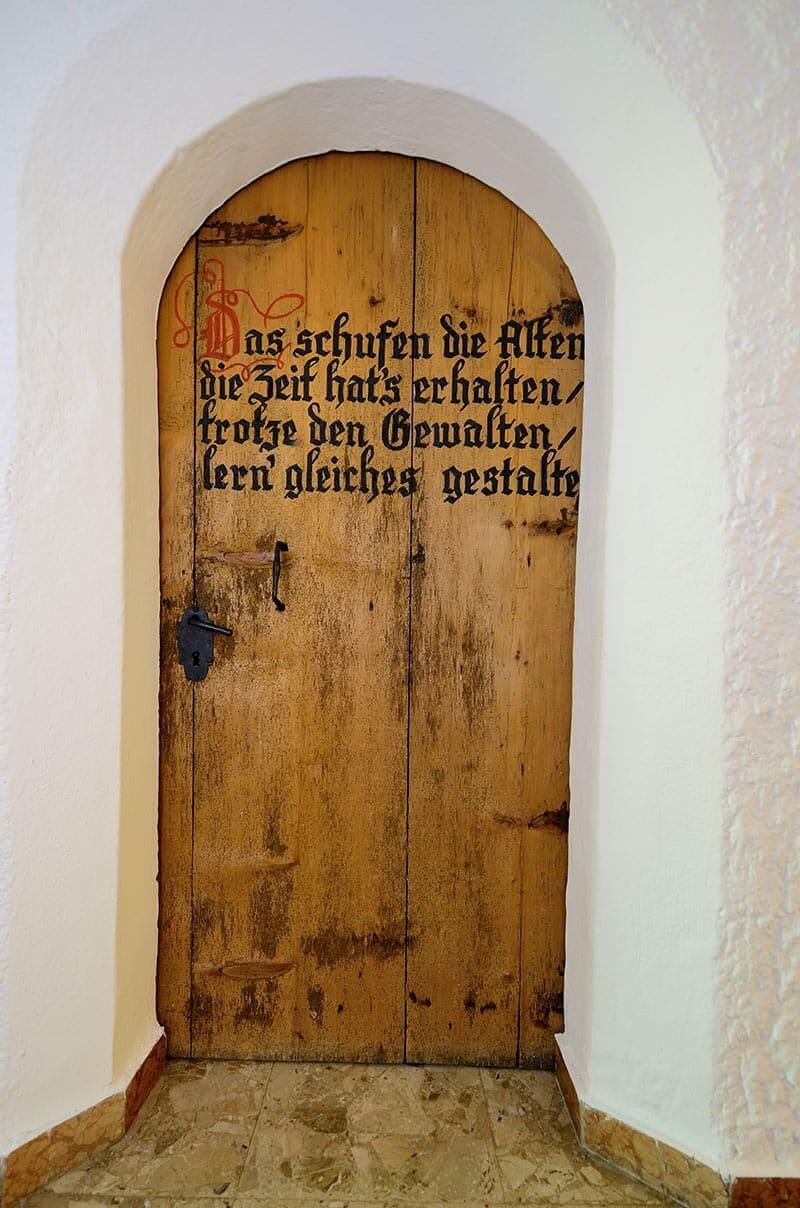 Das schufen die Alten
die Zeit hat's erhalten/
trotze den Gewalten/
lern' gleiches gestalte